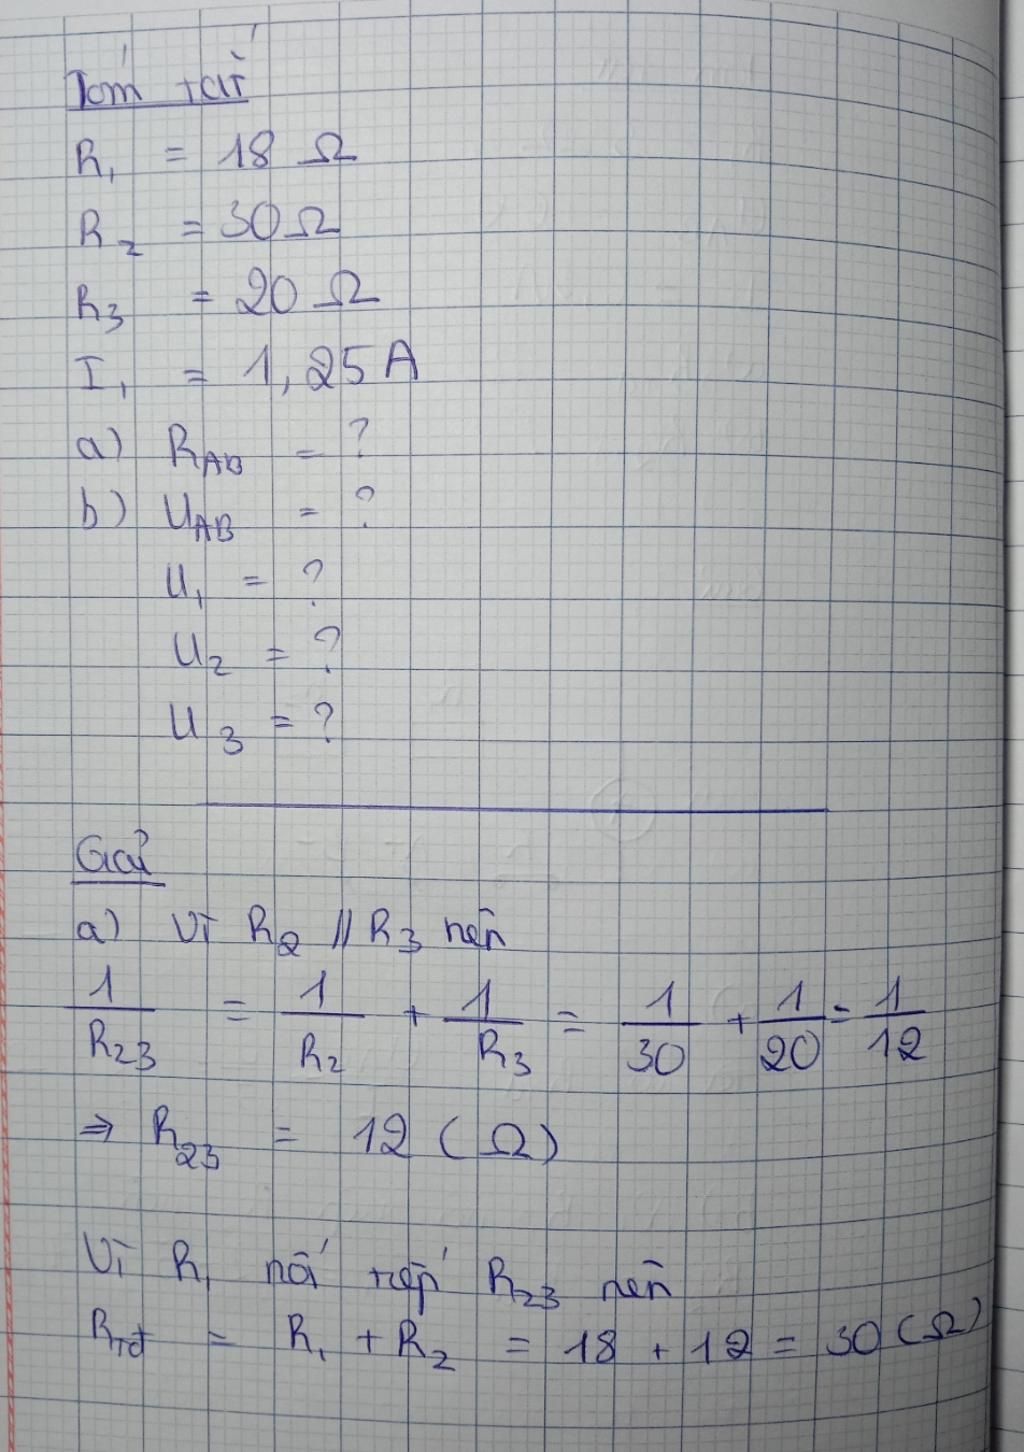 Tóm tắt
R₁ = 18 Ω
R₂ = 30 Ω
R₃ = 20 Ω
I₁ = 1,25 A
a) R_AB = ?
b) U_AB = ?
U₁ = ?
U₂ = ?
U₃ = ?
Giải
a) Vì R₂ // R₃ nên
1/R₂₃ = 1/R₂ + 1/R₃ = 1/30 + 1/20 = 1/12
⇒ R₂₃ = 12 (Ω)
Vì R₁ nối tiếp R₂₃ nên
R_tđ = R₁ + R₂ = 18 + 12 = 30 (Ω)